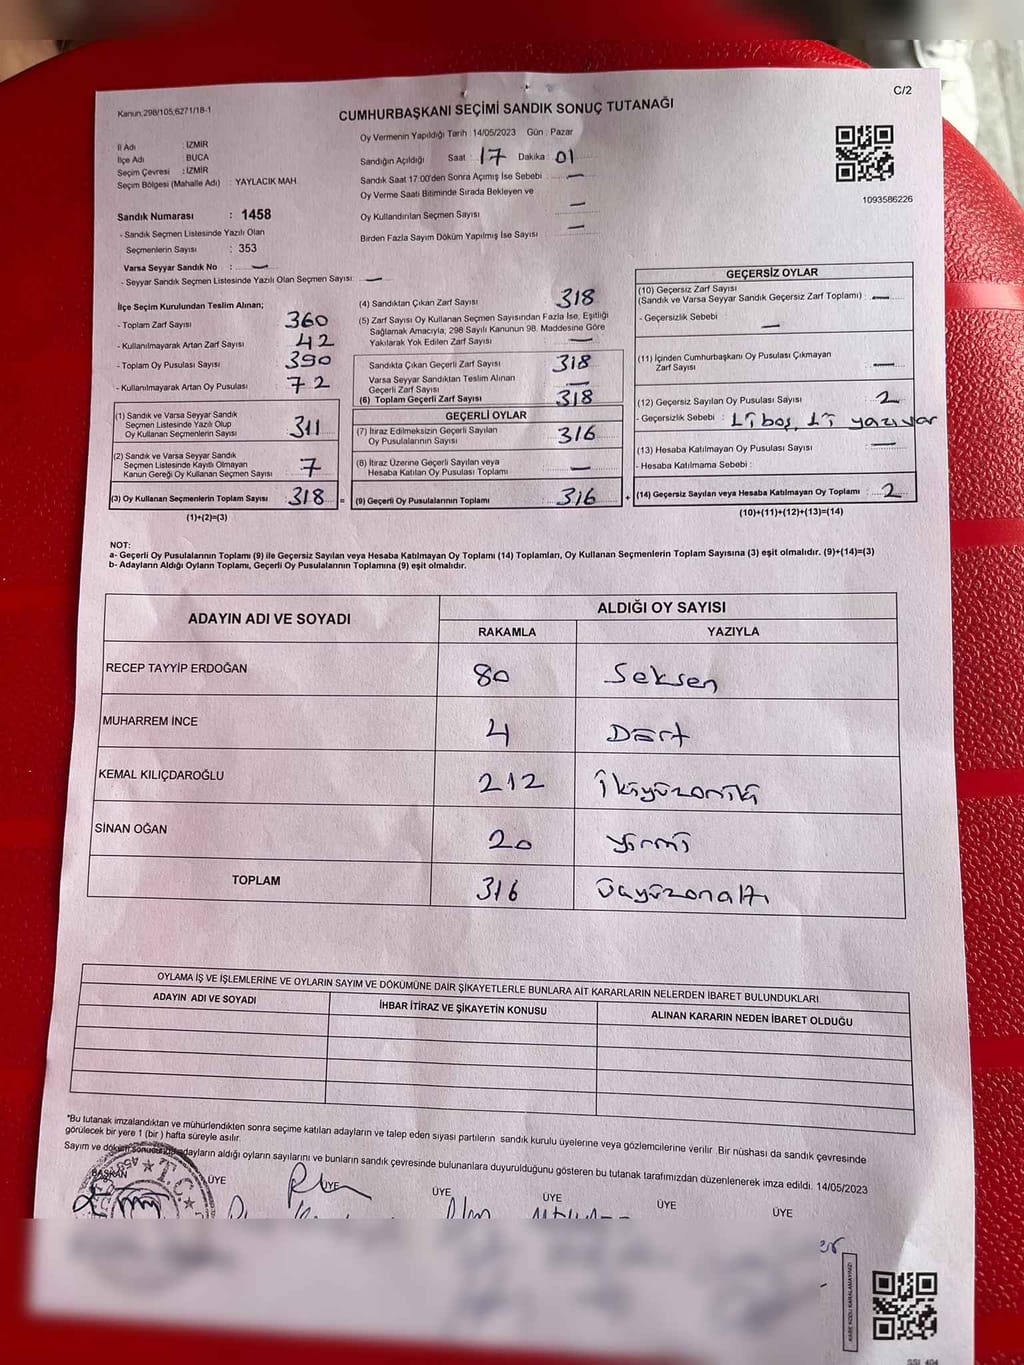 C/2
Kanun;298/105;6271/18-1
CUMHURBAŞKANI SEÇİMİ SANDIK SONUÇ TUTANAĞI
İl Adı : İZMİR
İlçe Adı : BUCA
Seçim Çevresi : İZMİR
Seçim Bölgesi (Mahalle Adı) : YAYLACIK MAH.
Sandık Numarası : 1458
- Sandık Seçmen Listesinde Yazılı Olan
Seçmenlerin Sayısı : 353
Varsa Seyyar Sandık No : —
- Seyyar Sandık Seçmen Listesinde Yazılı Olan Seçmen Sayısı: —
Oy Vermenin Yapıldığı Tarih :14/05/2023 Gün : Pazar
Sandığın Açıldığı Saat : 17 Dakika : 01
Sandık Saat 17:00'den Sonra Açımış İse Sebebi : —
Oy Verme Saati Bitiminde Sırada Bekleyen ve
Oy Kullandırılan Seçmen Sayısı —
Birden Fazla Sayım Döküm Yapılmış İse Sayısı —
1093586226
İlçe Seçim Kurulundan Teslim Alınan;
- Toplam Zarf Sayısı 360
- Kullanılmayarak Artan Zarf Sayısı 42
- Toplam Oy Pusulası Sayısı 390
- Kullanılmayarak Artan Oy Pusulası 72
(1) Sandık ve Varsa Seyyar Sandık
Seçmen Listesinde Yazılı Olup
Oy Kullanan Seçmenlerin Sayısı 311
(2) Sandık ve Varsa Seyyar Sandık
Seçmen Listesinde Kayıtlı Olmayan
Kanun Gereği Oy Kullanan Seçmen Sayısı 7
(3) Oy Kullanan Seçmenlerin Toplam Sayısı 318 =
(1)+(2)=(3)
(4) Sandıktan Çıkan Zarf Sayısı 318
(5) Zarf Sayısı Oy Kullanan Seçmen Sayısından Fazla İse, Eşitliği
Sağlamak Amacıyla; 298 Sayılı Kanunun 98. Maddesine Göre
Yakılarak Yok Edilen Zarf Sayısı —
Sandıkta Çıkan Geçerli Zarf Sayısı 318
Varsa Seyyar Sandıktan Teslim Alınan
Geçerli Zarf Sayısı —
(6) Toplam Geçerli Zarf Sayısı 318
GEÇERLİ OYLAR
(7) İtiraz Edilmeksizin Geçerli Sayılan
Oy Pusulalarının Sayısı 316
(8) İtiraz Üzerine Geçerli Sayılan veya
Hesaba Katılan Oy Pusulası Toplamı —
(9) Geçerli Oy Pusulalarının Toplamı 316 +
GEÇERSİZ OYLAR
(10) Geçersiz Zarf Sayısı
(Sandık ve Varsa Seyyar Sandık Geçersiz Zarf Toplamı) : —
- Geçersizlik Sebebi : —
(11) İçinden Cumhurbaşkanı Oy Pusulası Çıkmayan
Zarf Sayısı —
(12) Geçersiz Sayılan Oy Pusulası Sayısı 2
- Geçersizlik Sebebi : 1'i boş, 1'i yazıvar
(13) Hesaba Katılmayan Oy Pusulası Sayısı —
- Hesaba Katılmama Sebebi :
(14) Geçersiz Sayılan veya Hesaba Katılmayan Oy Toplamı : 2
(10)+(11)+(12)+(13)=(14)
NOT:
a- Geçerli Oy Pusulalarının Toplamı (9) ile Geçersiz Sayılan veya Hesaba Katılmayan Oy Toplamı (14) Toplamları, Oy Kullanan Seçmenlerin Toplam Sayısına (3) eşit olmalıdır. (9)+(14)=(3)
b- Adayların Aldığı Oyların Toplamı, Geçerli Oy Pusulalarının Toplamına (9) eşit olmalıdır.
ADAYIN ADI VE SOYADI ALDIĞI OY SAYISI
RAKAMLA YAZIYLA
RECEP TAYYİP ERDOĞAN 80 Seksen
MUHARREM İNCE 4 Dört
KEMAL KILIÇDAROĞLU 212 İkiyüzoniki
SİNAN OĞAN 20 yirmi
TOPLAM 316 üçyüzonaltı
OYLAMA İŞ VE İŞLEMLERİNE VE OYLARIN SAYIM VE DÖKÜMÜNE DAİR ŞİKAYETLERLE BUNLARA AİT KARARLARIN NELERDEN İBARET BULUNDUKLARI
ADAYIN ADI VE SOYADI İHBAR İTİRAZ VE ŞİKAYETİN KONUSU ALINAN KARARIN NEDEN İBARET OLDUĞU
*Bu tutanak imzalandıktan ve mühürlendikten sonra seçime katılan adayların ve talep eden siyasi partilerin sandık kurulu üyelerine veya gözlemcilerine verilir. Bir nüshası da sandık çevresinde
görülecek bir yere 1 (bir ) hafta süreyle asılır.
Sayım ve döküm sonucunda adayların aldığı oyların sayılarını ve bunların sandık çevresinde bulunanlara duyurulduğunu gösteren bu tutanak tarafımızdan düzenlenerek imza edildi. 14/05/2023
BAŞKAN ÜYE ÜYE ÜYE ÜYE ÜYE ÜYE
T.C.
KARE KODU KARALAMAYINIZ!